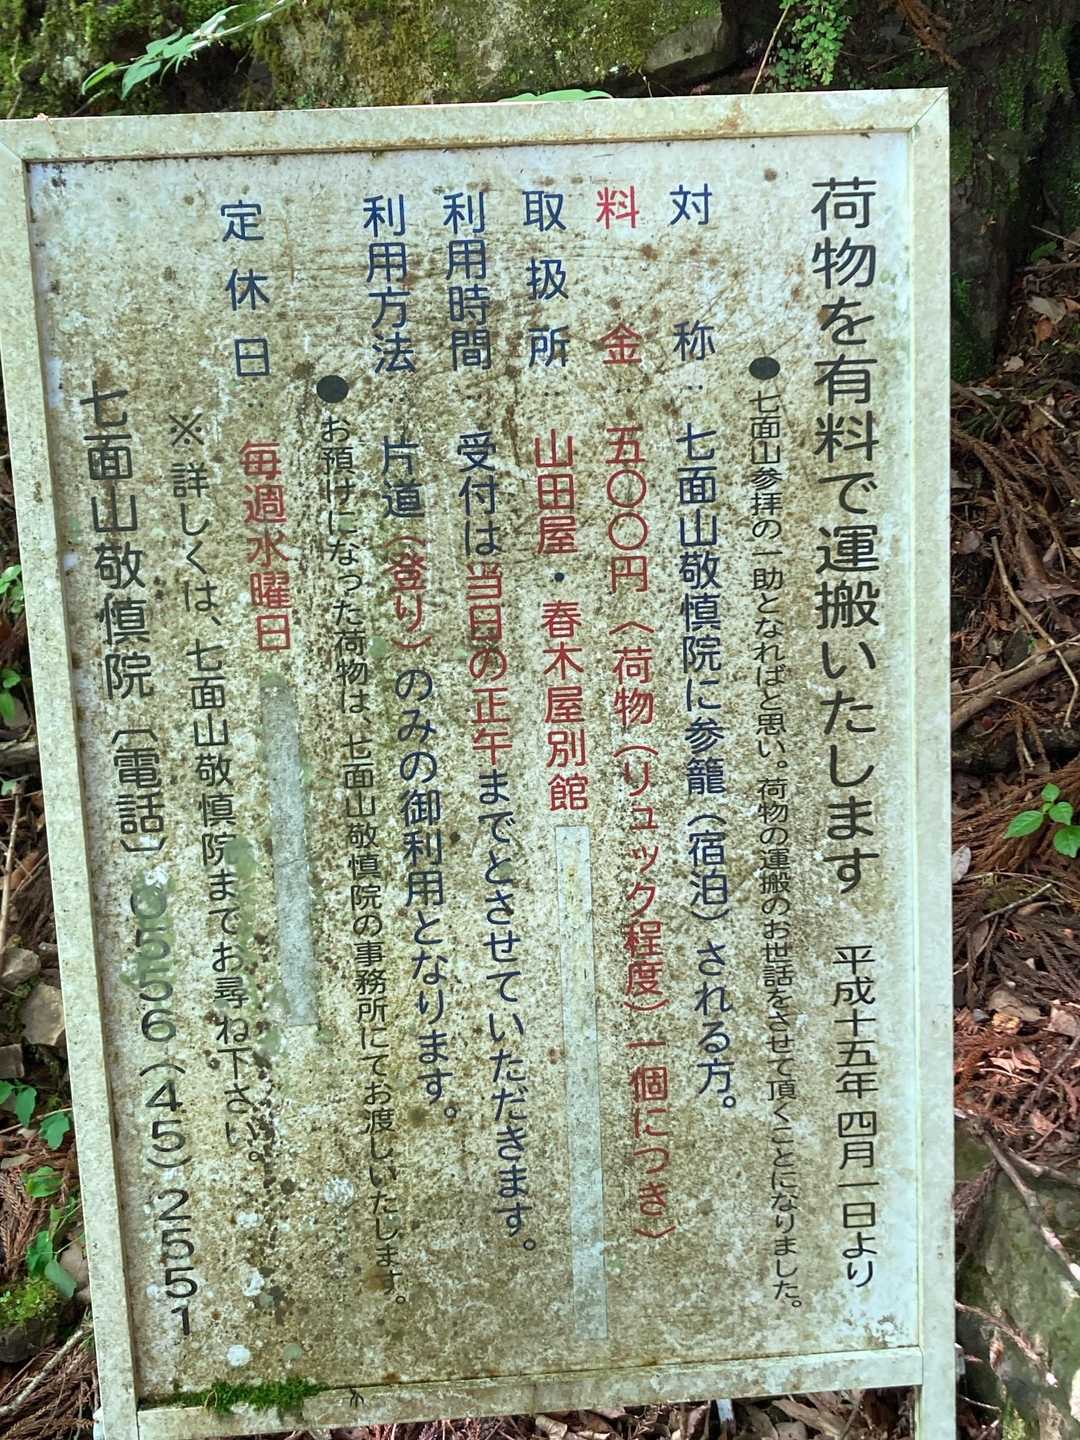 荷物を有料で運搬いたします 平成十五年四月一日より
●七面山参拝の一助となればと思い。荷物の運搬のお世話をさせて頂くことになりました。
対称…七面山敬慎院に参籠(宿泊)される方。
料金…五〇〇円〈荷物(リュック程度)一個につき〉
取扱所…山田屋・春木屋別館
利用時間…受付は当日の正午までとさせていただきます。
利用方法…片道(登り)のみの御利用となります。
●お預けになった荷物は、七面山敬慎院の事務所にてお渡しいたします。
定休日…毎週水曜日
※詳しくは、七面山敬慎院までお尋ね下さい。
七面山敬慎院〔電話〕0556(45)2551